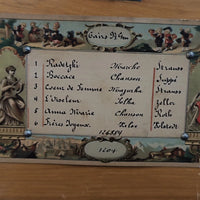 Gairs 9 4m
1 Radetzki Marche Strauss
2 Boccace Chanson Suppé
3 Coeur de Femme Mazurka Strauss
4 L'Oiseleur Polka Zeller
5 Anna Marie Chanson Roth
6 Frères Joyeux Valse Volstedt
126554
1604